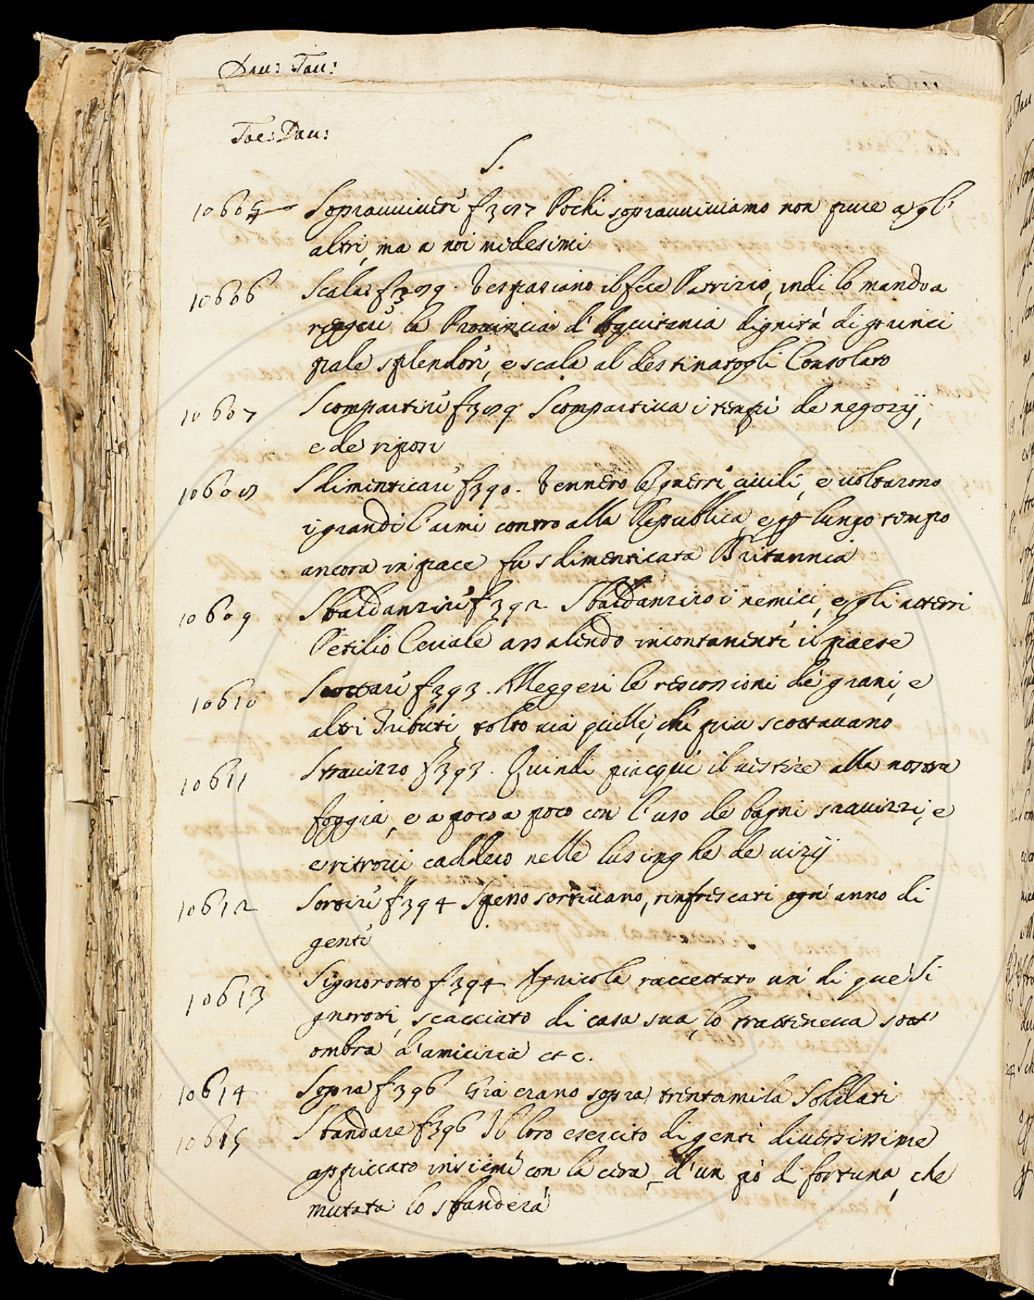 Dau: Tau:
Tac: Dau:
S.
10605 Sopravivere f 387 Pochi sopravviviamo non pure agl'
altri, ma a noi medesimi
10606 Scala f 389. Vespasiano il fece Patrizio, indi lo mandò a
reggere la Provincia d'Aquitania dignità di princi
pale splendore, e scala al destinatogli Consolato
10607 Scompartire f 389. Scompartiva i tempi de negozij,
e de riposi
10608 Sdimenticare f 390. Vennero le guerre civili, e voltarono
i grandi l'armi contro alla Republica, e p lungo tempo
ancora in pace fu sdimenticata Britannia
10609 Sbaldanzire f 392 Sbaldanzirò i nemici, e gli atterri
Petilio Ceriale assalendo incontanente il paese
10610 Scottare f 393. Alleggerì le riscossioni de' grani, e
altri tributi, tolto via quelle, che più scottavano
10611 Stravizzo f 393. Quindi piacque il vestire alla nostra
foggia, e a poco a poco con l'uso de bagni stravizzi, e
e ritrovi caddero nelle lusinghe de vizij
10612 Sortire f 394 Spesso sortivano, rinfrescati ogn'anno di
gente
10613 Signorotto f 394 Agricola raccettato un di que' Si
gnorotti, scacciato di casa sua, lo tratteneva sott'
ombra d'amicizia etc.
10614 Sopra f 396 Già erano sopra trentamila Soldati
10615 Sbandare f 396 Il loro esercito di genti diversissime
appiccato insieme con la cera d'un pò di fortuna, che
mutata lo sbanderà